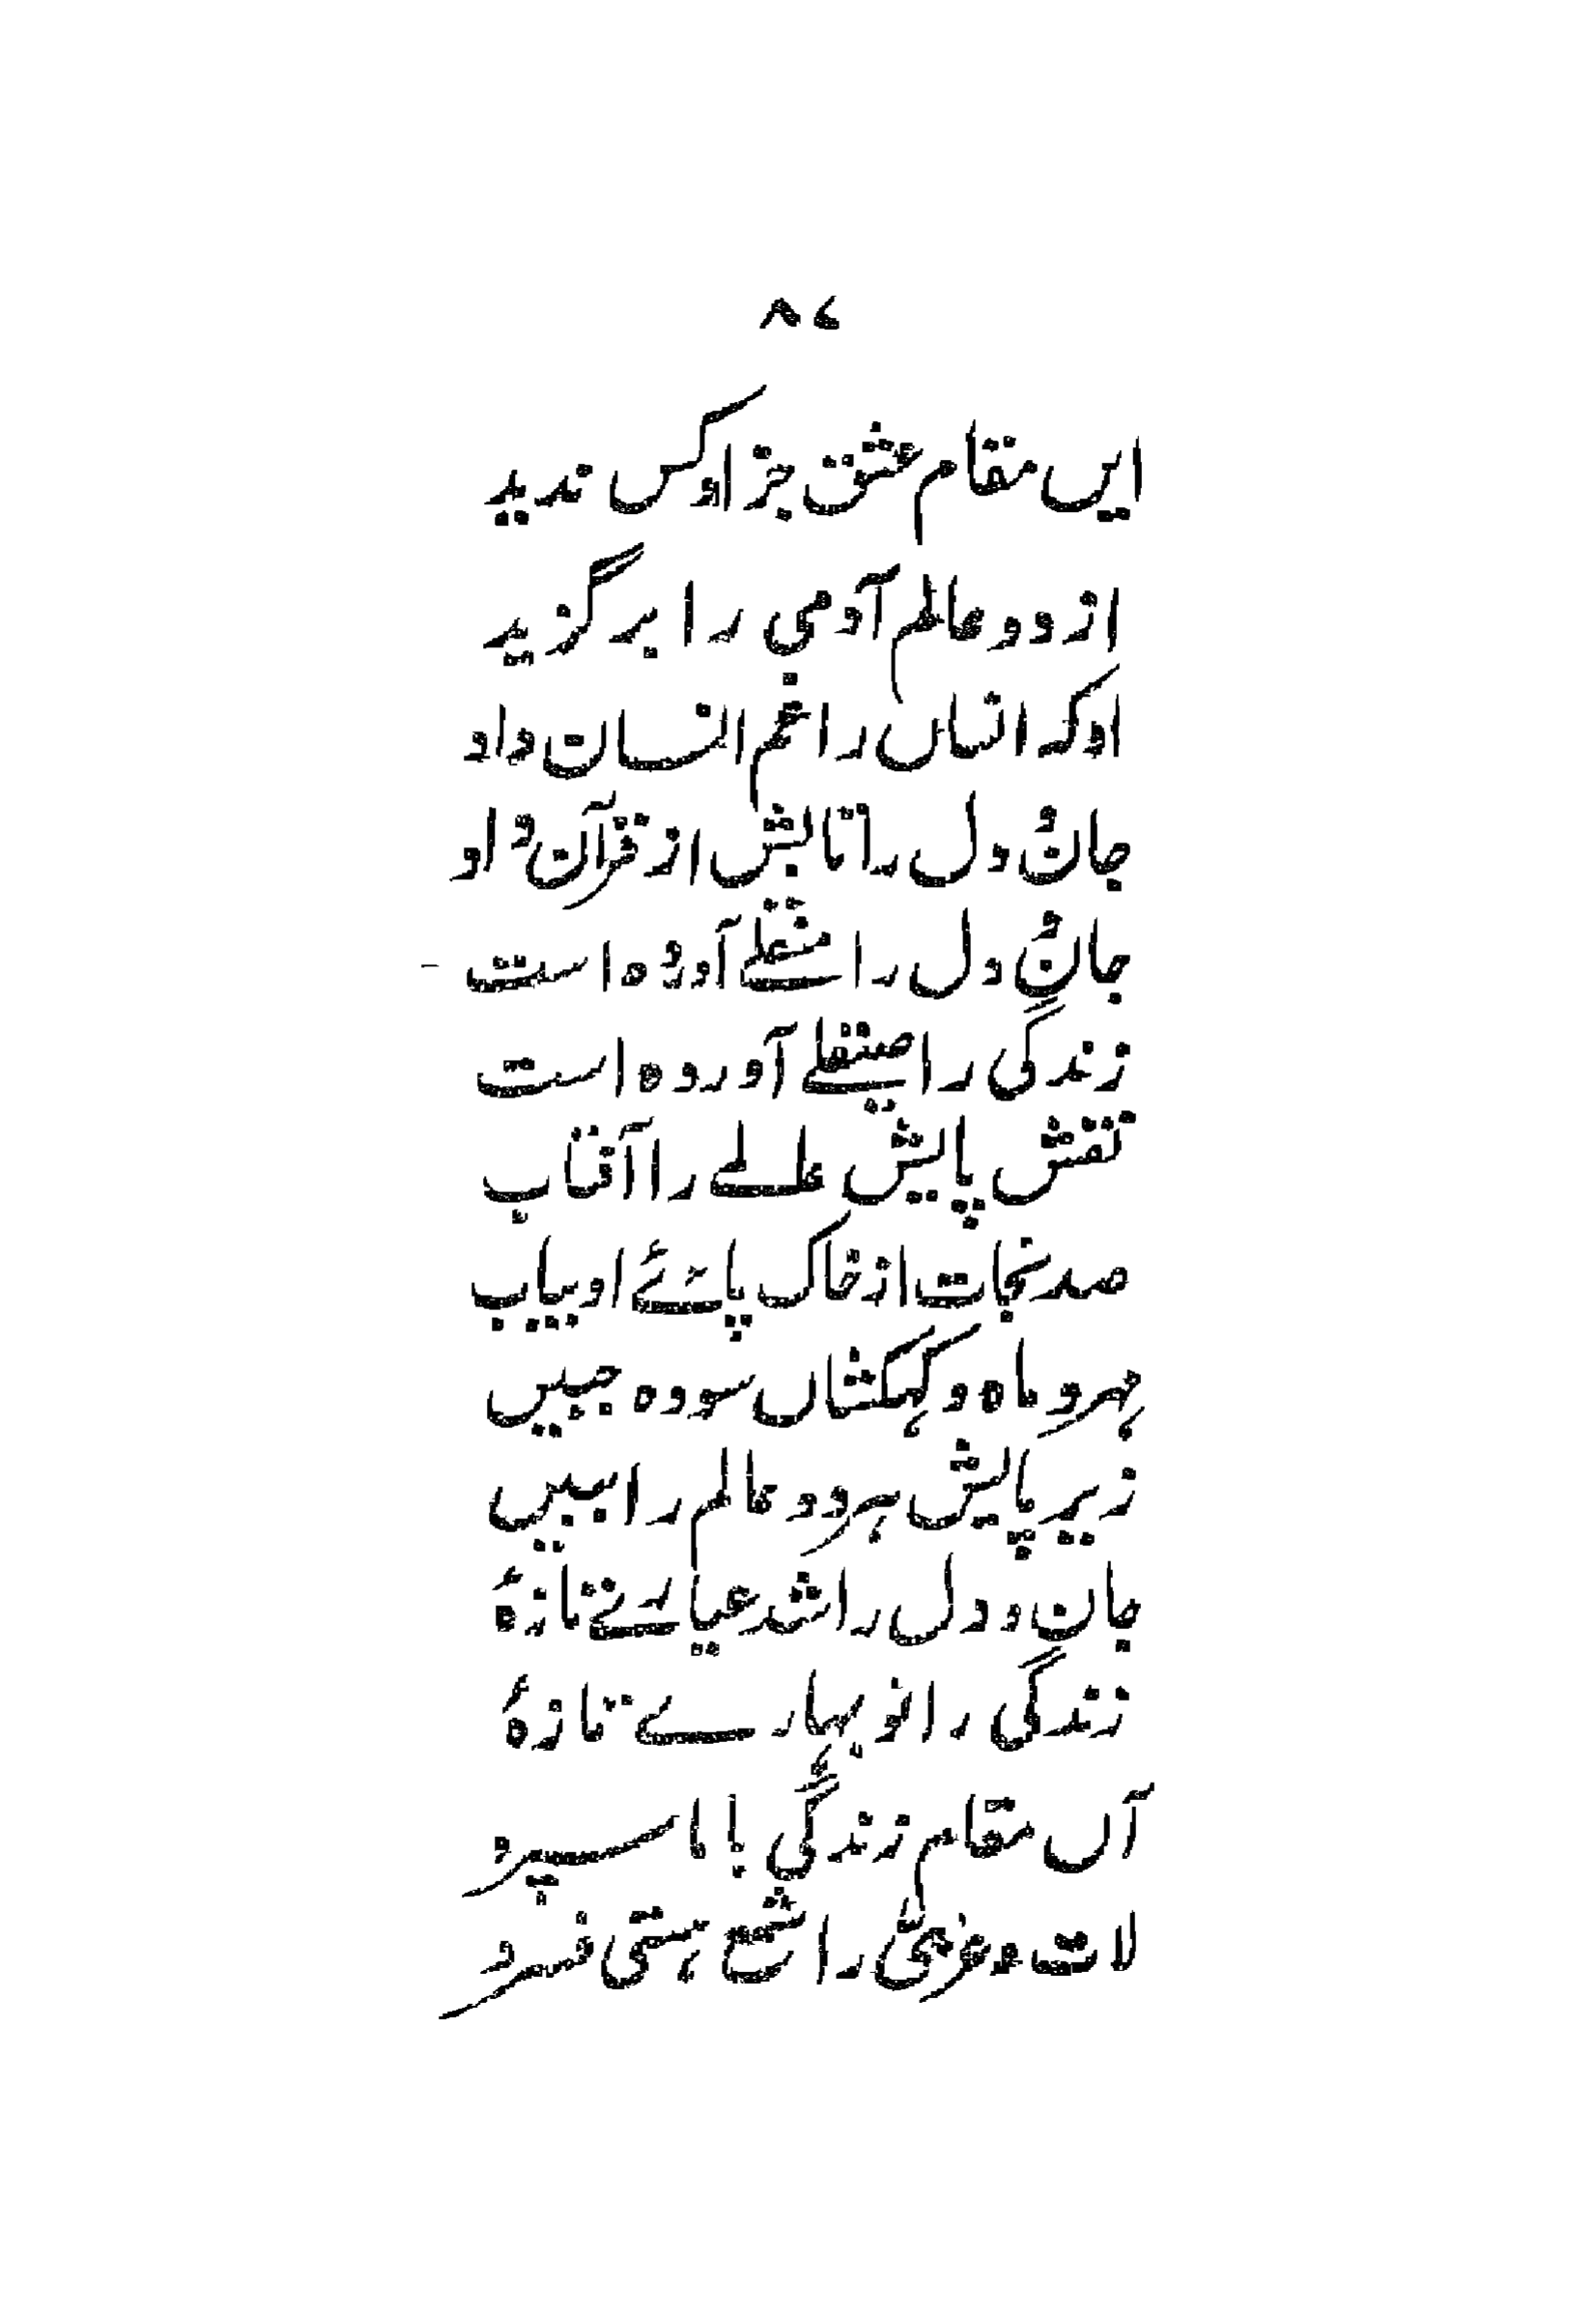 ۸۷
ایں مقام عشق جز او کس ندید
از دو عالم آدمی را برگزید
او کہ انساں را غم انسان داد
جان و دل را تابش از قرآن داد
جان و دل را مشعلے آوردہ است
زندگی را صیقلے آوردہ است
نقش پایش عالمے را آفتاب
صد نجات از خاک پائے او بیاب
مہر و ماہ و کہکشاں سودہ جبیں
زیر پایش ہر دو عالم را ببیں
جان و دل را شد عیارے تازۂ
زندگی را نو بہارے تازۂ
آں مقام زندگی با ما سپرد
لات و عزیٰ را شمع ہستی فسرد